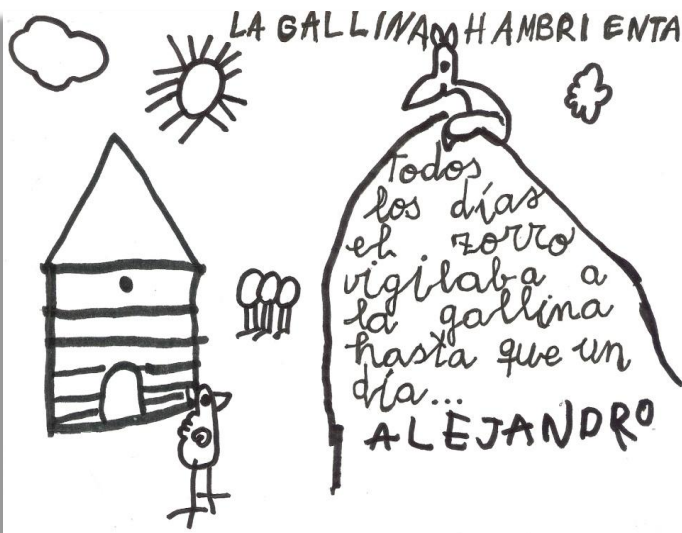 LA GALLINA HAMBRIENTA
Todos
los días
el zorro
vigilaba a
la gallina
hasta que un
día...
ALEJANDRO